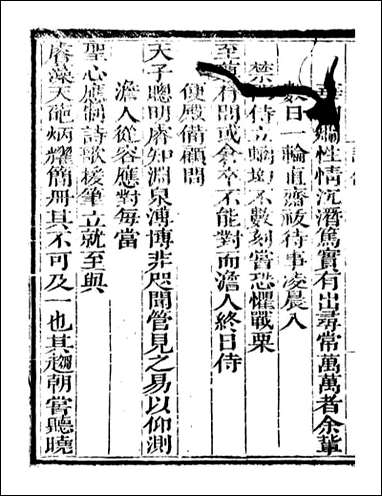 性情沉潛篤實有出尋常萬萬者余輩
數日一輪直齋祓待事凌晨入
禁侍立螭坳不數刻嘗恐懼戰栗
至尊有問或倉卒不能對而澹人終日侍
便殿備顧問
天子聰明睿知淵泉溥博非咫聞管見之易以仰測
澹人從容應對每當
聖心應制詩歌援筆立就至與
睿藻天葩炳耀簡冊其不可及一也其趨朝嘗聽曉